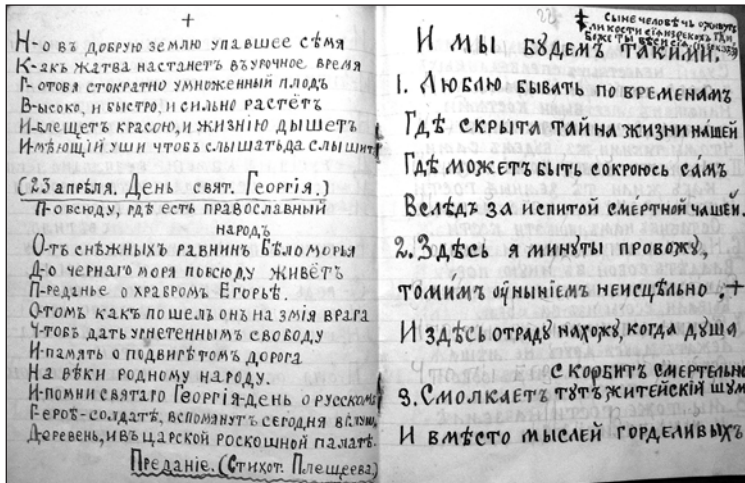 +
Н-о въ добрую землю упавшее сѣмя
К-акъ жатва настанетъ въ урочное время
Г-отовя стократно умноженный плодъ
В-ысоко, и быстро, и сильно растётъ
И-блещетъ красою, и жизнію дышетъ
И-мѣющій уши чтобъ слышать да слышитъ!
(23 апрѣля. День свят. Георгія.)
П-овсюду, гдѣ есть православный
народъ
О-тъ снѣжныхъ равнинъ Бѣломорья
Д-о чернаго моря повсюду живётъ
П-реданье о храбромъ Егорьѣ.
О-томъ какъ пошелъ онъ на змія врага
Ч-тобъ дать угнетеннымъ свободу
И-память о подвигѣ томъ дорога
На вѣки родному народу.
И-помни святаго Георгія-день о русскомъ
Г-ероѣ-солдатѣ, вспомянутъ сегодня
Деревень, и въ царской роскошной палатѣ.
Преданіе. (Стихот. Плещеева)
22
‡ Сыне человѣчь оживутъ
ли кости сія
Боже ты вѣси сія
И мы будемъ такими.
1. Люблю бывать по временамъ
Гдѣ скрыта тайна жизни нашей
Гдѣ можетъ быть сокроюсь самъ
Вслѣдъ за испитой смертной чашей.
2. Здѣсь я минуты провожу,
томимъ оуныніемъ неисцѣльно. +
И здѣсь отраду нахожу, когда душа
скорбитъ смертельно
3. Смолкаетъ тутъ житейскій шумъ
И вмѣсто мыслей горделивыхъ